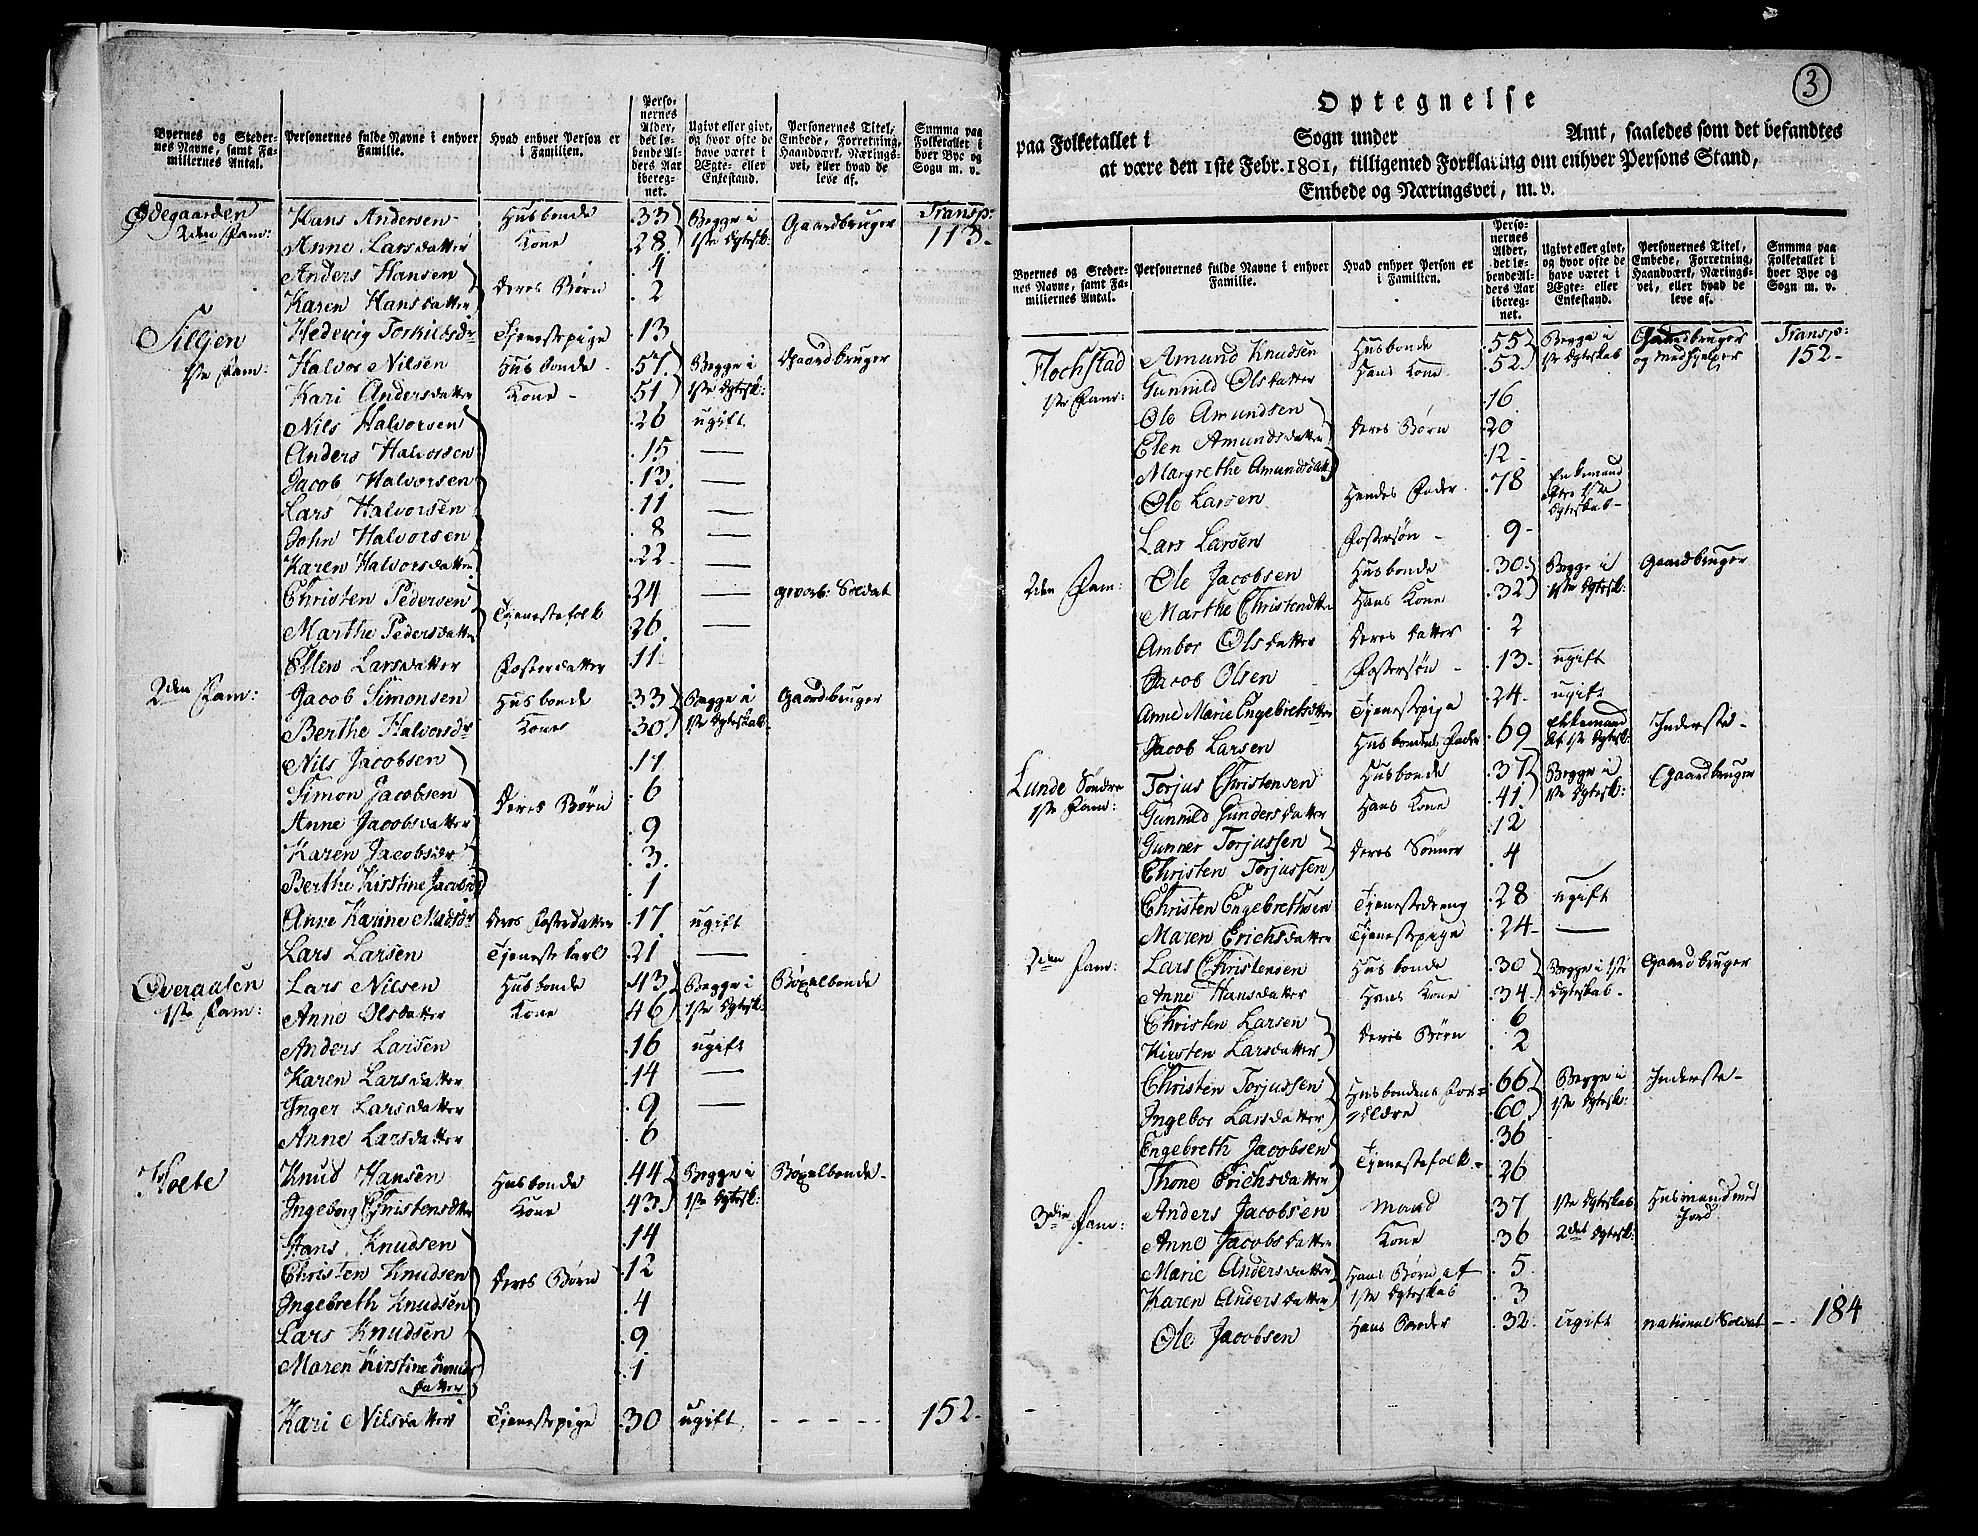 Byernes og Steder-
nes Navne, samt Fa-
miliernes Antal.
Personernes fulde Navne i enhver
Familie.
Hvad enhver Person er
i Familien.
Perso-
nernes
Alder,
det lø-
bende Al-
ders Aar
ibereg-
net.
Ugivt eller givt,
og hvor ofte de
have været i
Ægte- eller
Enkestand.
Personernes Titel,
Embede, Forretning,
Haandværk, Nærings-
vei, eller hvad de
leve af.
Summa paa
Folketallet i
hver Bye og
Sogn m. v.
Ødegaarden Hans Andersen Husbonde 33 Begge i Gaardbruger Transp:
2den Fam: Anne Larsdatter Kone 28 1ste Egtesk: 113
Anders Hansen 4
Karen Hansdatter Deres Børn 2
Hedevig Torkildsdr Tjenestepige 13
Siljen Halvor Nilsen Husbonde 57 Begge i Gaardbruger
1ste Fam: Kari Andersdatter Kone 51 1ste Egtesk:
Nils Halvorsen 26 ugift
Anders Halvorsen 15 —
Jacob Halvorsen 13 —
Lars Halvorsen 11 —
John Halvorsen 8 —
Karen Halvorsdatter 22 —
Christen Pedersen Tjenestefolk 24 — gevorb: Soldat
Marthe Pedersdatter 26 —
Ellen Larsdatter Fosterdatter 11
2den Fam: Jacob Simonsen Husbonde 33 Begge i Gaardbruger
Berthe Halvorsdr Kone 30 1ste Egteskab
Nils Jacobsen 11
Simon Jacobsen Deres Børn 6
Anne Jacobsdatter 9
Karen Jacobsdr 3
Berthe Kirstine Jacobsdr 1
Anne Karine Madsdr Deres Fosterdatter 17 ugift
Lars Larsen Tjenestekarl 21 —
Overaasen Lars Nilsen Husbonde 43 Begge i Bøxelbonde
1ste Fam: Anne Olsdatter Kone 46 1ste Egtesk:
Anders Larsen 16 ugift
Karen Larsdatter 14 —
Inger Larsdatter 9 —
Anne Larsdatter 6
Knud Hansen Husbonde 44 Begge i Bøxelbonde
Ingeborg Christensdtter Kone 43 1ste Egtesk:
Hans Knudsen 14
Christen Knudsen Deres Børn 12
Ingebreth Knudsen 4
Lars Knudsen 9
Maren Kirstine Knuds
datter 1
Kari Nilsdatter Tjenestepige 30 ugift - - - - - 152
3
Optegnelse
paa Folketallet i Sogn under Amt, saaledes som det befandtes
at være den 1ste Febr. 1801, tilligemed Forklaring om enhver Persons Stand,
Embede og Næringsvei, m. v.
Byernes og Steder-
nes Navne, samt Fa-
miliernes Antal.
Personernes fulde Navne i enhver
Familie.
Hvad enhver Person er
i Familien.
Perso-
nernes
Alder,
det lø-
bende Al-
ders Aar
ibereg-
net.
Ugivt eller givt,
og hvor ofte de
have været i
Ægte- eller
Enkestand.
Personernes Titel,
Embede, Forretning,
Haandværk, Nærings-
vei, eller hvad de
leve af.
Summa paa
Folketallet i
hver Bye og
Sogn m. v.
Flochstad Amund Knudsen Husbonde 55 Begge i Gaardbruger Transp:
1ste Fam: Gunnild Olsdatter Hans Kone 52 1ste Egteskab og Medhjelper 152
Ole Amundsen 16
Elen Amundsdatter Deres Børn 20
Margrethe Amundsdatter 12
Ole Larsen Hendes Fader 78 Enkemand
efter 1ste
Egteskab
Lars Larsen Fostersøn 9
2den Fam: Ole Jacobsen Husbonde 30 Begge i Gaardbruger
Marthe Christensdtter Hans Kone 32 1ste Egtesk:
Ambor Olsdatter Deres Datter 2
Jacob Olsen Fostersøn 13 ugift
Anne Marie Engebrethsdtter Tjenestepige 24 ugift
Jacob Larsen Husbondens Fader 69 Enkemand Inderste
af 1ste Egtesk:
Lunde Søndre Torjus Christensen Husbonde 37 Begge i Gaardbruger
1ste Fam: Gunnild Gundersdatter Hans Kone 41 1ste Egtesk:
Gunner Torjussen Deres Sønner 12
Christen Torjussen 4
Christen Engebrethsen Tjenestedreng 28 ugift
Maren Erichsdatter Tjenestepige 24 —
2den Fam: Lars Christensen Husbonde 30 Begge i 1ste Gaardbruger
Anne Hansdatter Hans Kone 34 Egteskab
Christen Larsen Deres Børn 6
Kirsten Larsdatter 2
Christen Torjussen Husbondens For- 66 Begge i Inderste
Ingebor Larsdatter ældre 60 1ste Egtesk:
Engebreth Jacobsen Tjenestefolk 36
Thone Erichsdatter 26
3die Fam: Anders Jacobsen Mand 37 1ste Egteskab Husmand med
Jord
Anne Jacobsdatter Kone 36 2det Egtesk:
Marie Andersdatter Hans Børn af 5
Karen Andersdatter 1ste Egteskab 3
Ole Jacobsen Hans Broder 32 Ugift national Soldat - - 184